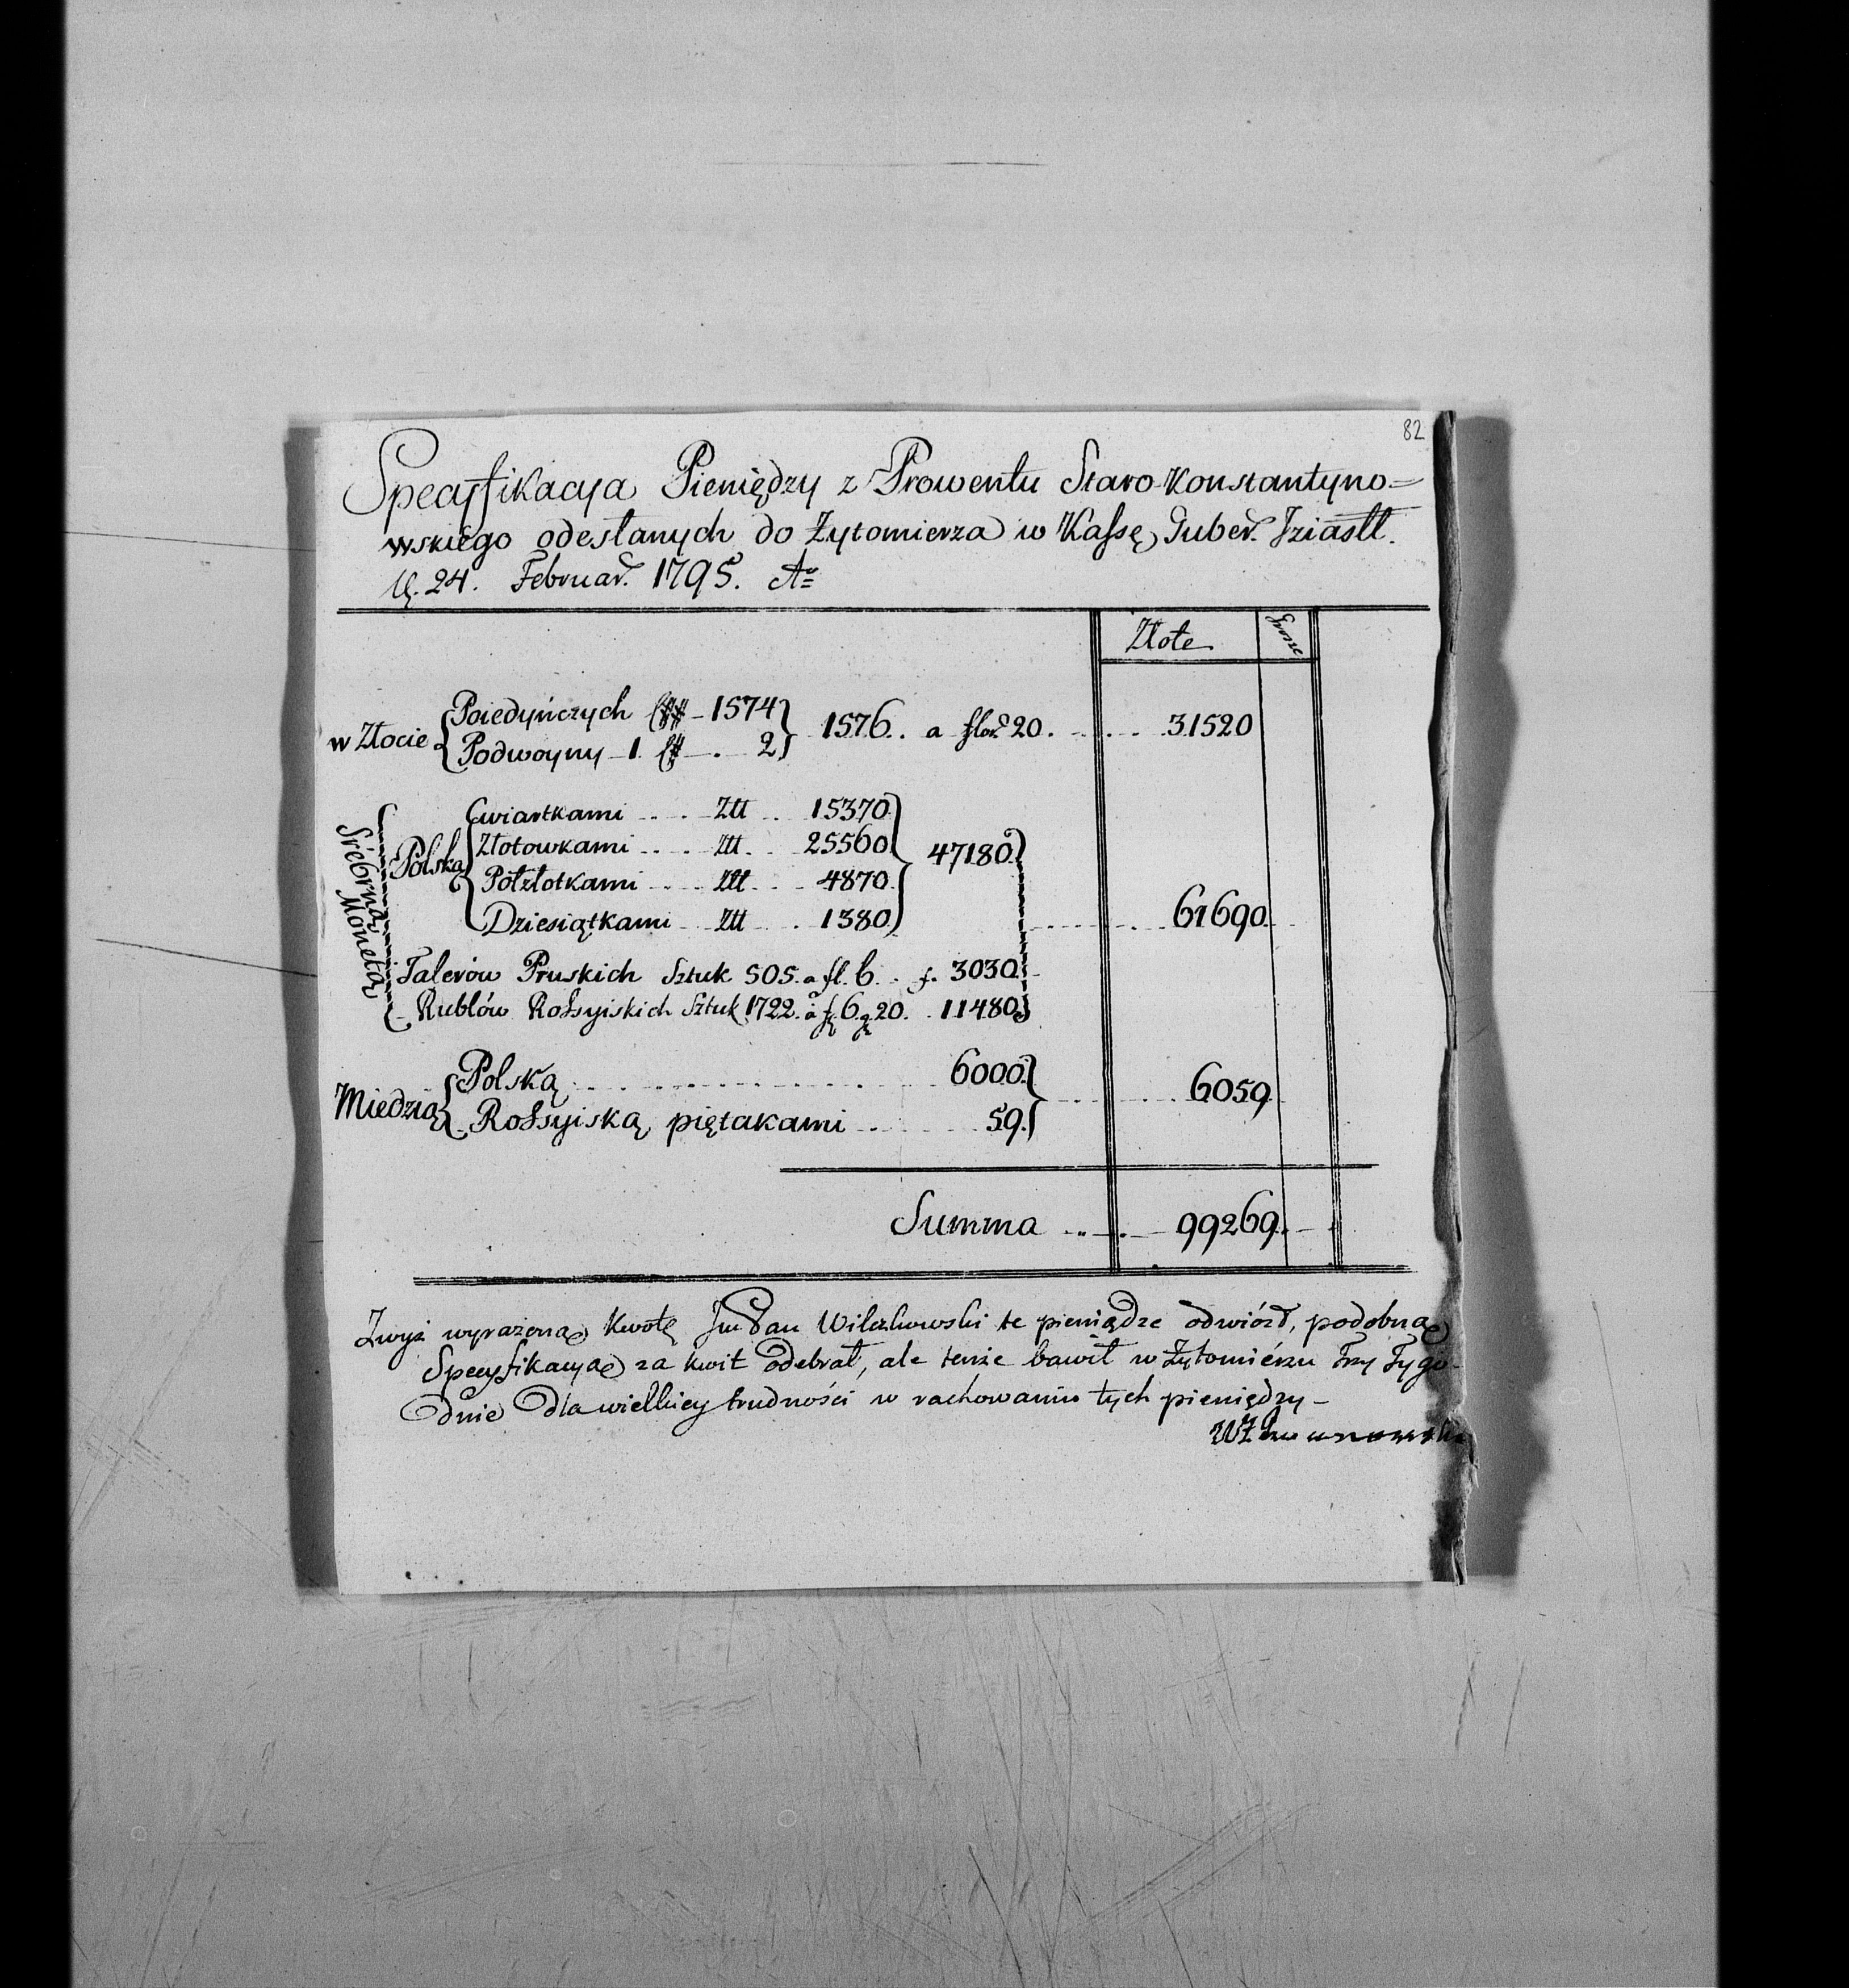 82
Specyfikacya Pieniędzy z Prowentu Staro-Konstantyno=
wskiego odesłanych do Żytomierza w Kassę Guber. Iziasll.
24. Februar. 1795. Ao
Złote Grosze
w Złocie Poiedyńczych 1574 1576.. a flor. 20. 31520
Podwoyny 1 2
Srebrną Monetą
Polską
Cwiartkami .... Złł .. 15370
Złotowkami .... Złł. . 25560 47180
Połzłotkami .... Złł. .. 4870 61690.
Dziesiątkami .. Złł .. 1380
Talerów Pruskich Sztuk 505. a fl. 6. . f. 3030
Rublów Rossyiskich Sztuk 1722. à f. 6 g. 20. . 11480
Miedzią Polską .......... 6000 6059
Rossyiską piętakami ..... 59.
Summa .... 99269. -
Zwyż wyrażoną Kwotę Pan Wilczkowski te pieniądze odwiózł, podobną
Specyfikacyą za kwit odebrał, ale tenże bawił w Żytomiérzu Trzy Tygo-
dnie dla wielkiey trudności w rachowaniu tych pieniędzy -